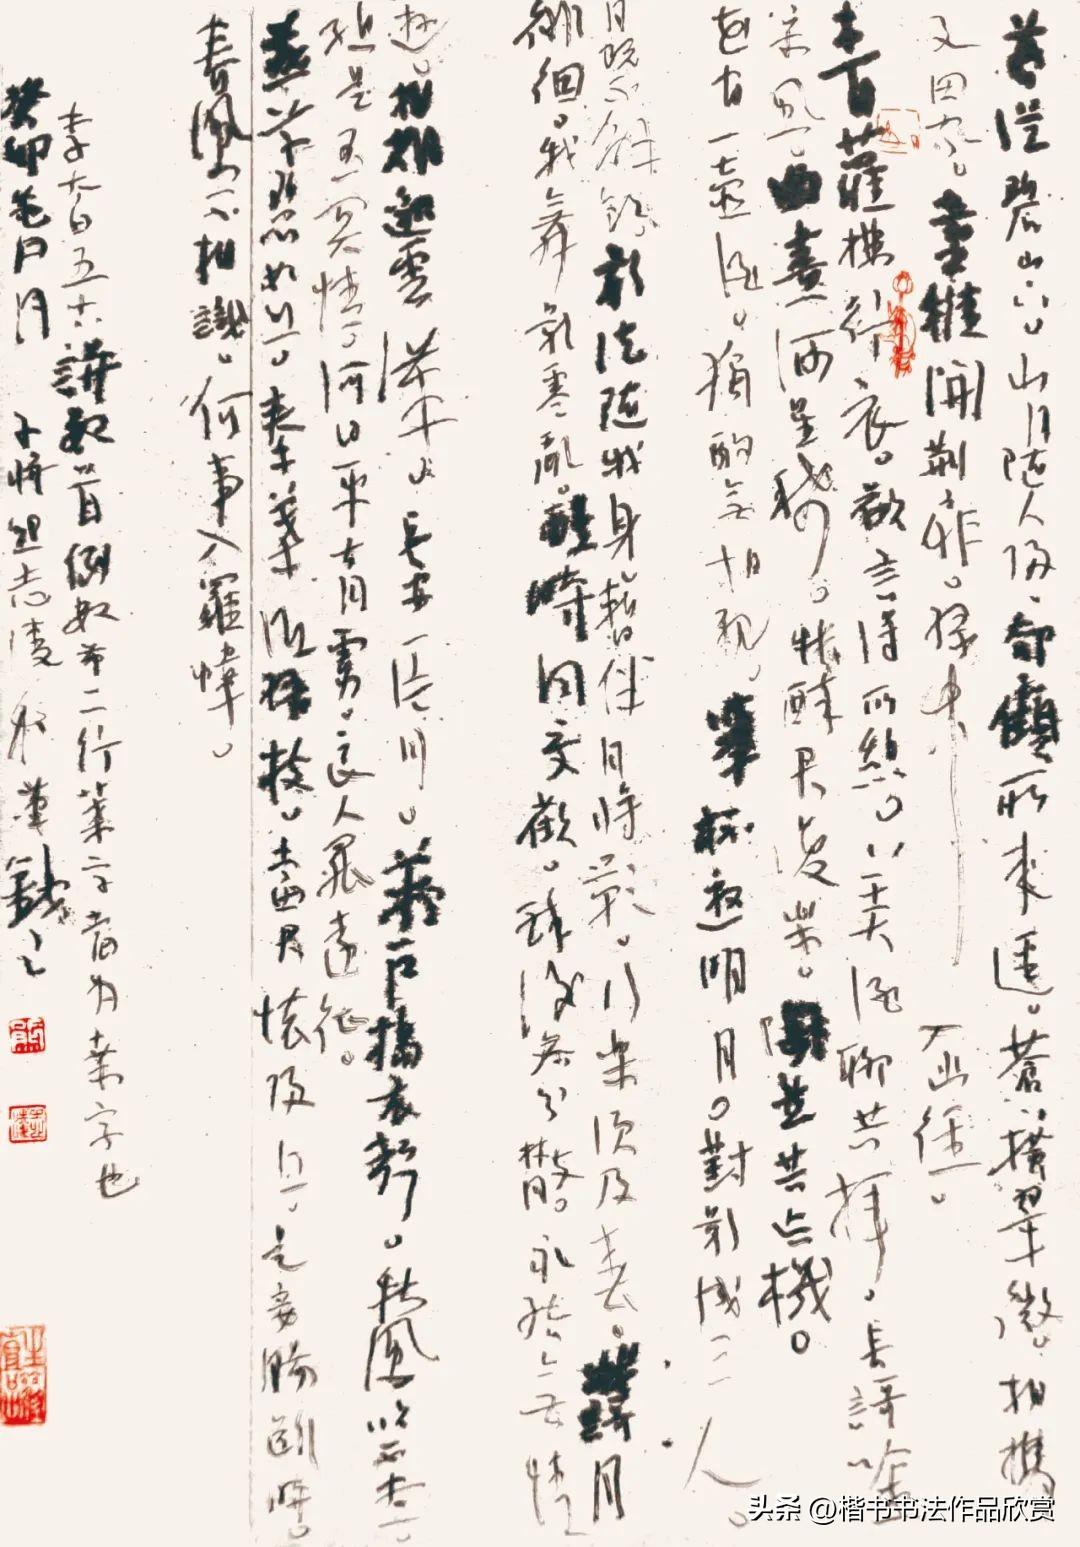 暮從碧山下。山月隨人歸、却顧所來逕。蒼々橫翠微。相攜
及田家。童稚開荆扉。緑竹入幽徑。
青蘿拂行衣。歡言得所憩。美酒聊共揮。長謌吟
松風。曲盡河星稀。我醉君復樂。陶然共忘機。
花間一壺酒。獨酌無相親、舉杯邀明月。對影成三人。
月既不解飲、影徒隨我身、暫伴月將影。行樂須及春。我謌月
徘徊。我舞影零亂。醒時同交歡。醉後各分散。永結無情
遊。相期邈雲漢。長安一片月。萬戶擣衣聲。秋風吹不盡
總是玉關情。何日平胡虜。良人罷遠征。
燕草碧如絲。秦桑低緑枝。當君懷歸日。是妾腸斷時。
春風不相識。何事入羅幃。
李太白五古 首 第二行葉字當為桑字也
癸卯 月
头条 @楷书书法作品欣赏